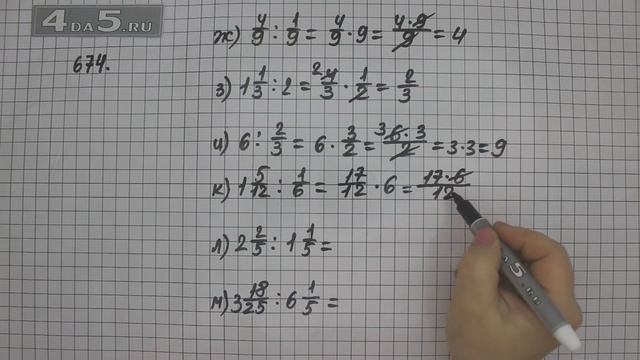 4DA5.RU
674.
ж) 4/9 : 1/9 = 4/9 · 9 = 4·9/9 = 4
з) 1 1/3 : 2 = 2 4/3 · 1/2 = 2/3
и) 6 : 2/3 = 6 · 3/2 = 3 6·3/2 = 3·3 = 9
к) 1 5/12 : 1/6 = 17/12 · 6 = 17·6/12
л) 2 2/5 : 1 1/5 =
м) 3 18/25 : 6 1/5 =
4DA5.RU